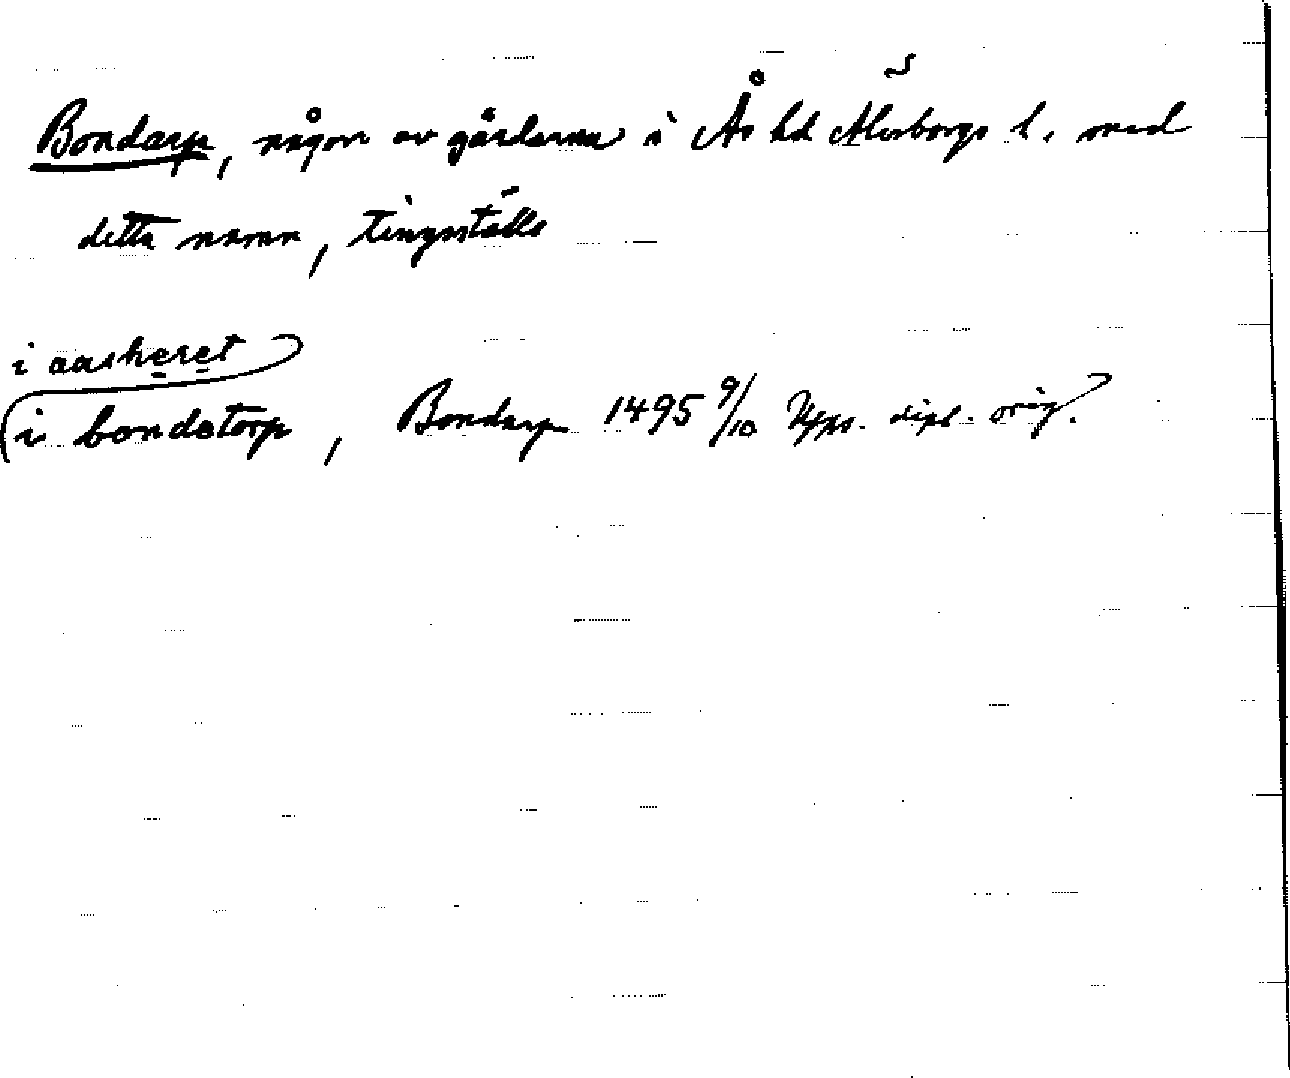 Bondarp, någon av gårdarna i Ås hd Älvsborgs l. med
detta namn, tingsställe
i aasheret
i bondetorp, Bondarp 1495 9/10 Upps. dipl. orig.